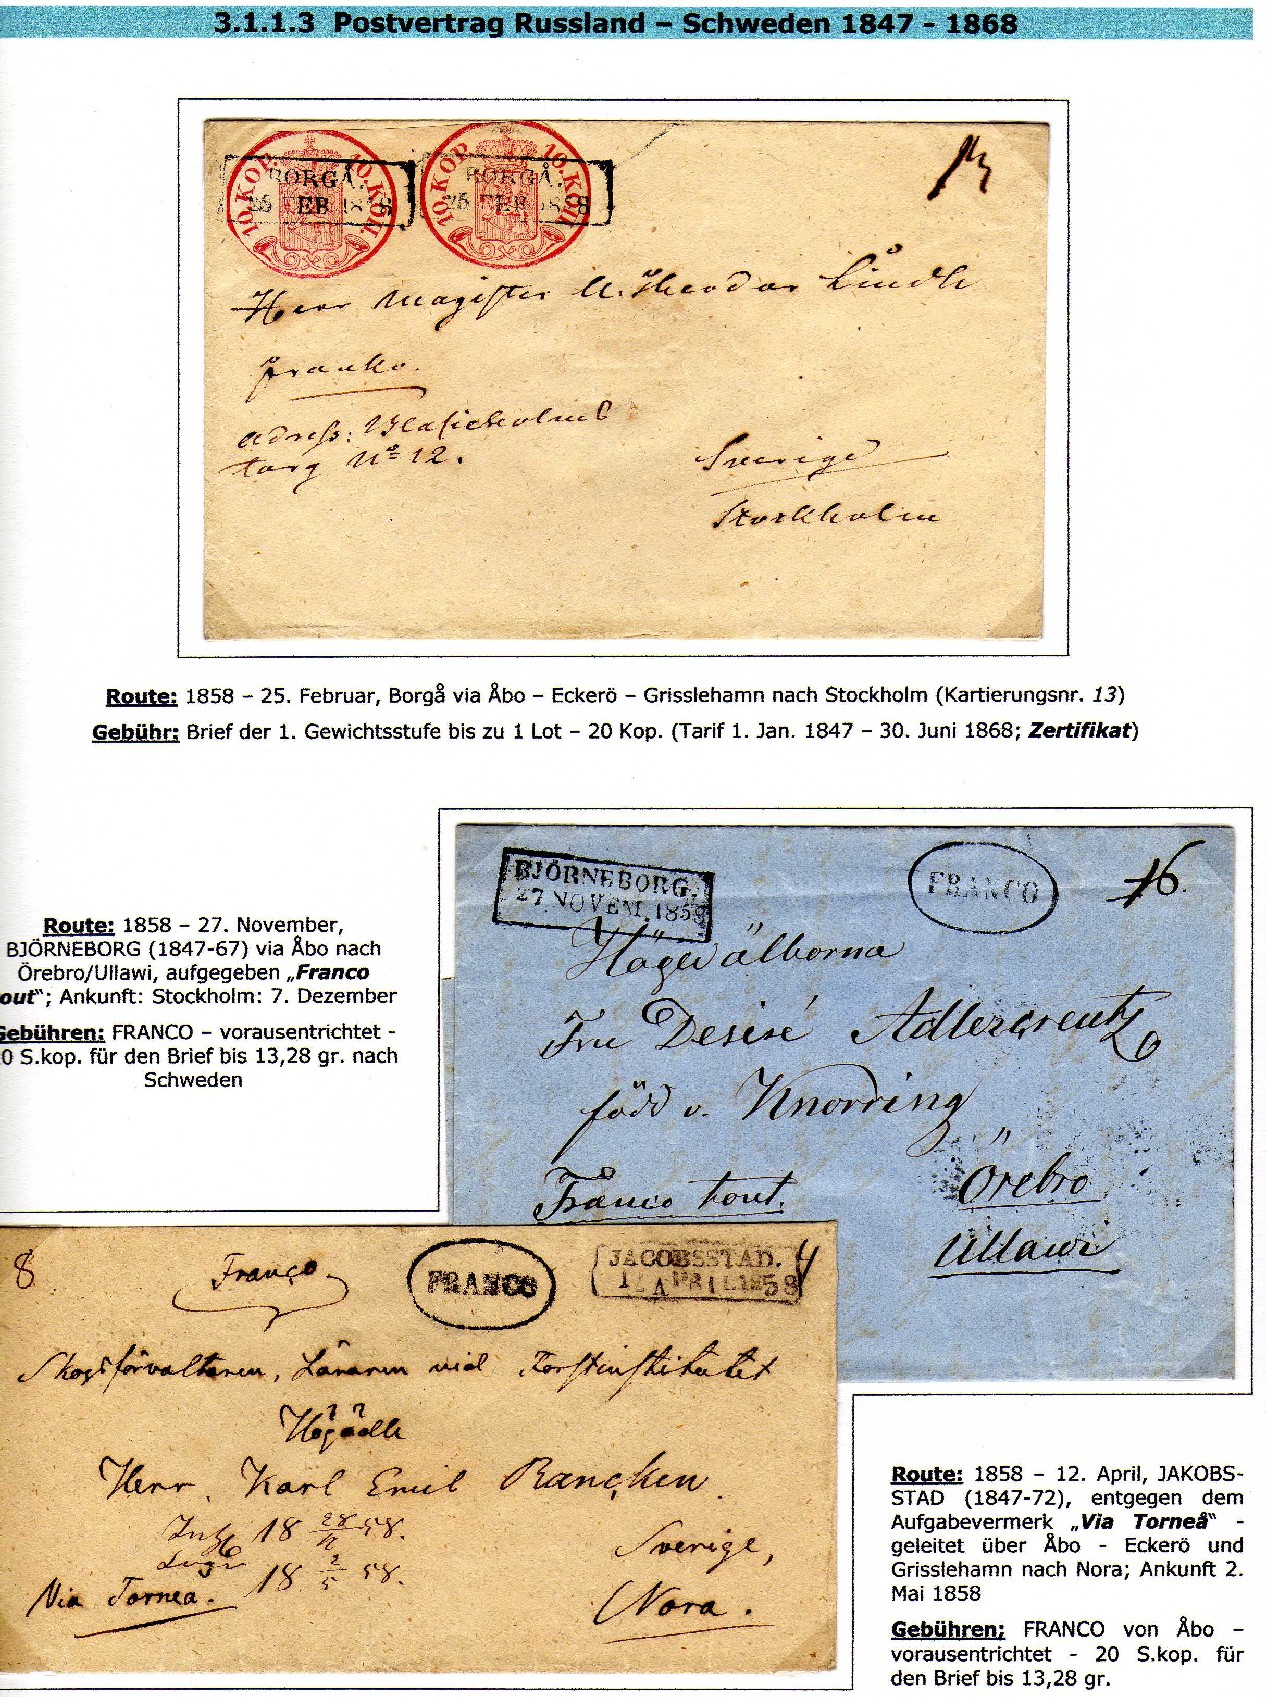 3.1.1.3 Postvertrag Russland – Schweden 1847 - 1868
10.KOP. 10.КОП.
10.KOP. 10.КОП.
BORGÅ.
25 FEB 1858
BORGÅ.
25 FEB 1858
13
Herr Magister A. Theodor Lindh
Franko.
Adress: Blasieholms
torg No 12.
Sverige
Stockholm
Route: 1858 – 25. Februar, Borgå via Åbo – Eckerö – Grisslehamn nach Stockholm (Kartierungsnr. 13)
Gebühr: Brief der 1. Gewichtsstufe bis zu 1 Lot – 20 Kop. (Tarif 1. Jan. 1847 – 30. Juni 1868; Zertifikat)
Route: 1858 – 27. November,
BJÖRNEBORG (1847-67) via Åbo nach
Örebro/Ullawi, aufgegeben „Franco
out“; Ankunft: Stockholm: 7. Dezember
Gebühren: FRANCO – vorausentrichtet -
0 S.kop. für den Brief bis 13,28 gr. nach
Schweden
BJÖRNEBORG.
27 NOVEM. 1858
FRANCO
16.
Högvälborna
Fru Desiré Adlercreutz
född v. Knorring
Franco tout.
Örebro
Ullawi
8
Franco
FRANCO
JACOBSSTAD.
12 APRIL 1858
4
Skogsförvaltaren, Läraren vid Forstinstitutet
Högädle
Herr Karl Emil Rancken
18 28/4 58.
18 2/5 58.
Via Torneå.
Sverige,
Nora.
Route: 1858 – 12. April, JAKOBS-
STAD (1847-72), entgegen dem
Aufgabevermerk „Via Torneå“ -
geleitet über Åbo - Eckerö und
Grisslehamn nach Nora; Ankunft 2.
Mai 1858
Gebühren: FRANCO von Åbo –
vorausentrichtet - 20 S.kop. für
den Brief bis 13,28 gr.